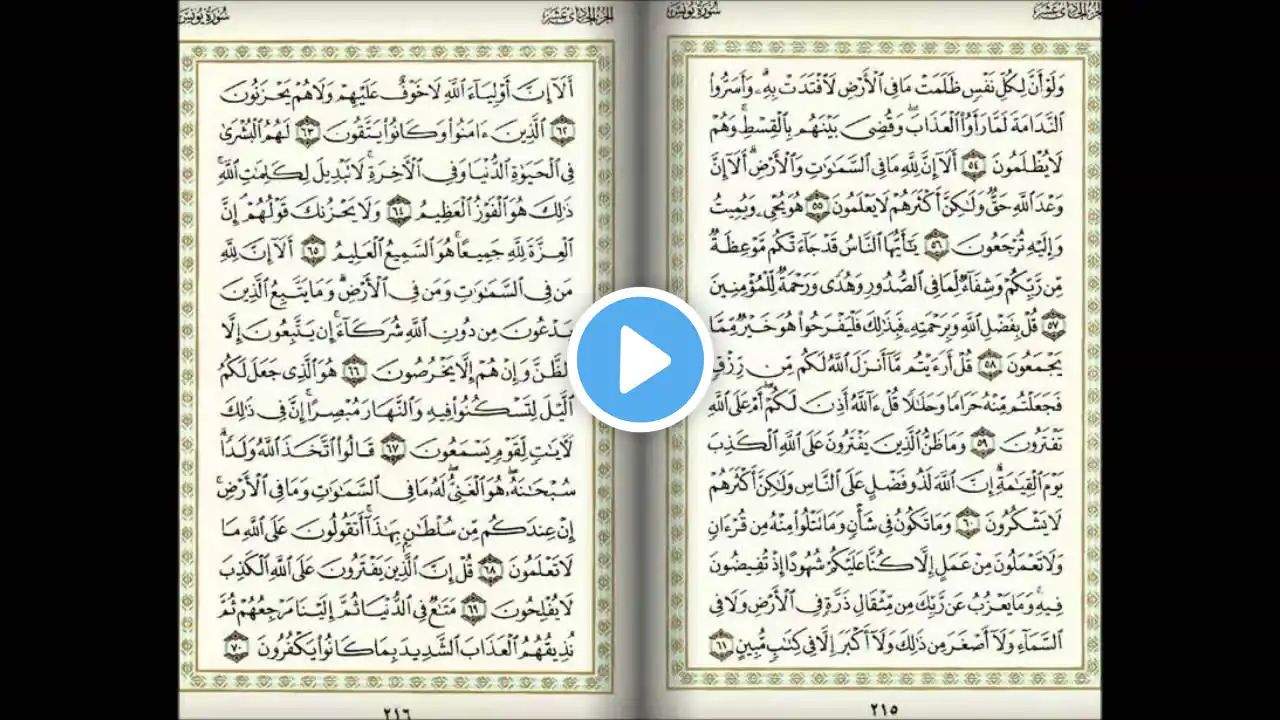 سُورَةُ يُونُسَ
الجُزْءُ الحَادِى عَشَرَ
وَلَوْ أَنَّ لِكُلِّ نَفْسٍ ظَلَمَتْ مَا فِي ٱلْأَرْضِ لَٱفْتَدَتْ بِهِۦۗ وَأَسَرُّوا۟
ٱلنَّدَامَةَ لَمَّا رَأَوُا۟ ٱلْعَذَابَۖ وَقُضِىَ بَيْنَهُم بِٱلْقِسْطِۚ وَهُمْ
لَا يُظْلَمُونَ ٥٤ أَلَآ إِنَّ لِلَّهِ مَا فِي ٱلسَّمَٰوَٰتِ وَٱلْأَرْضِۗ أَلَآ إِنَّ
وَعْدَ ٱللَّهِ حَقٌّ وَلَٰكِنَّ أَكْثَرَهُمْ لَا يَعْلَمُونَ ٥٥ هُوَ يُحْىِۦ وَيُمِيتُ
وَإِلَيْهِ تُرْجَعُونَ ٥٦ يَٰٓأَيُّهَا ٱلنَّاسُ قَدْ جَآءَتْكُم مَّوْعِظَةٌ
مِّن رَّبِّكُمْ وَشِفَآءٌ لِّمَا فِي ٱلصُّدُورِ وَهُدًى وَرَحْمَةٌ لِّلْمُؤْمِنِينَ
٥٧ قُلْ بِفَضْلِ ٱللَّهِ وَبِرَحْمَتِهِۦ فَبِذَٰلِكَ فَلْيَفْرَحُوا۟ هُوَ خَيْرٌ مِّمَّا
يَجْمَعُونَ ٥٨ قُلْ أَرَءَيْتُم مَّآ أَنزَلَ ٱللَّهُ لَكُم مِّن رِّزْقٍ
فَجَعَلْتُم مِّنْهُ حَرَامًا وَحَلَٰلًا قُلْ ءَآللَّهُ أَذِنَ لَكُمْۖ أَمْ عَلَى ٱللَّهِ
تَفْتَرُونَ ٥٩ وَمَا ظَنُّ ٱلَّذِينَ يَفْتَرُونَ عَلَى ٱللَّهِ ٱلْكَذِبَ
يَوْمَ ٱلْقِيَٰمَةِۗ إِنَّ ٱللَّهَ لَذُو فَضْلٍ عَلَى ٱلنَّاسِ وَلَٰكِنَّ أَكْثَرَهُمْ
لَا يَشْكُرُونَ ٦٠ وَمَا تَكُونُ فِي شَأْنٍ وَمَا تَتْلُوا۟ مِنْهُ مِن قُرْءَانٍ
وَلَا تَعْمَلُونَ مِنْ عَمَلٍ إِلَّا كُنَّا عَلَيْكُمْ شُهُودًا إِذْ تُفِيضُونَ
فِيهِۚ وَمَا يَعْزُبُ عَن رَّبِّكَ مِن مِّثْقَالِ ذَرَّةٍ فِي ٱلْأَرْضِ وَلَا فِي
ٱلسَّمَآءِ وَلَآ أَصْغَرَ مِن ذَٰلِكَ وَلَآ أَكْبَرَ إِلَّا فِي كِتَٰبٍ مُّبِينٍ ٦١
٢١٥
سُورَةُ يُونُسَ
الجُزْءُ الحَادِى عَشَرَ
أَلَآ إِنَّ أَوْلِيَآءَ ٱللَّهِ لَا خَوْفٌ عَلَيْهِمْ وَلَا هُمْ يَحْزَنُونَ
٦٢ ٱلَّذِينَ ءَامَنُوا۟ وَكَانُوا۟ يَتَّقُونَ ٦٣ لَهُمُ ٱلْبُشْرَىٰ
فِي ٱلْحَيَوٰةِ ٱلدُّنْيَا وَفِي ٱلْءَاخِرَةِۚ لَا تَبْدِيلَ لِكَلِمَٰتِ ٱللَّهِۚ
ذَٰلِكَ هُوَ ٱلْفَوْزُ ٱلْعَظِيمُ ٦٤ وَلَا يَحْزُنكَ قَوْلُهُمْۘ إِنَّ
ٱلْعِزَّةَ لِلَّهِ جَمِيعًاۚ هُوَ ٱلسَّمِيعُ ٱلْعَلِيمُ ٦٥ أَلَآ إِنَّ لِلَّهِ
مَن فِي ٱلسَّمَٰوَٰتِ وَمَن فِي ٱلْأَرْضِۗ وَمَا يَتَّبِعُ ٱلَّذِينَ
يَدْعُونَ مِن دُونِ ٱللَّهِ شُرَكَآءَۚ إِن يَتَّبِعُونَ إِلَّا
ٱلظَّنَّ وَإِنْ هُمْ إِلَّا يَخْرُصُونَ ٦٦ هُوَ ٱلَّذِى جَعَلَ لَكُمُ
ٱلَّيْلَ لِتَسْكُنُوا۟ فِيهِ وَٱلنَّهَارَ مُبْصِرًاۚ إِنَّ فِي ذَٰلِكَ
لَءَايَٰتٍ لِّقَوْمٍ يَسْمَعُونَ ٦٧ قَالُوا۟ ٱتَّخَذَ ٱللَّهُ وَلَدًاۗ
سُبْحَٰنَهُۥۖ هُوَ ٱلْغَنِىُّۖ لَهُۥ مَا فِي ٱلسَّمَٰوَٰتِ وَمَا فِي ٱلْأَرْضِۚ
إِنْ عِندَكُم مِّن سُلْطَٰنٍۭ بِهَٰذَآۚ أَتَقُولُونَ عَلَى ٱللَّهِ مَا
لَا تَعْلَمُونَ ٦٨ قُلْ إِنَّ ٱلَّذِينَ يَفْتَرُونَ عَلَى ٱللَّهِ ٱلْكَذِبَ
لَا يُفْلِحُونَ ٦٩ مَتَٰعٌ فِي ٱلدُّنْيَا ثُمَّ إِلَيْنَا مَرْجِعُهُمْ ثُمَّ
نُذِيقُهُمُ ٱلْعَذَابَ ٱلشَّدِيدَ بِمَا كَانُوا۟ يَكْفُرُونَ ٧٠
٢١٦